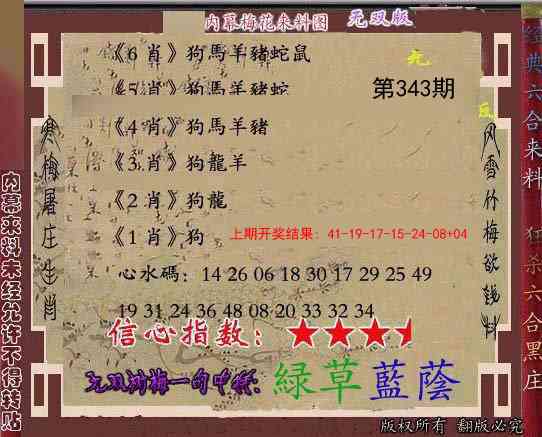 内幕梅花来料图 无双版
《6 肖》狗馬羊豬蛇鼠
无
《5 肖》狗馬羊豬蛇
第343期
《4 肖》狗馬羊豬
《3 肖》狗龍羊
《2 肖》狗龍
《1 肖》狗
上期开奖结果: 41-19-17-15-24-08+04
心水碼: 14 26 06 18 30 17 29 25 49
19 31 24 36 48 08 20 33 32 34
信心指数: ★★★
绿草藍蔭
寒梅屠庄生肖
风雪竹梅欲钱料
内幕来料未经允许不得转贴
经典六合来料
狂杀六合黑庄
版权所有 翻版必究